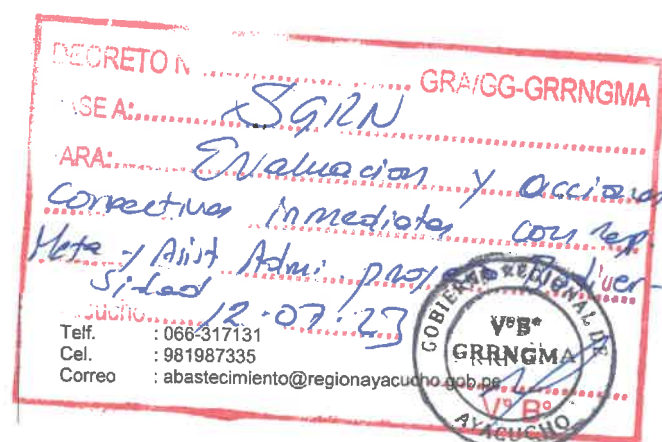 DECRETO N ............ GRA/GG-GRRNGMA
ASE A: SGRN
ARA: Evaluacion y acciones
correctivas inmediatas con rep.
Meta y Asist Admi. proy Biodiver-
sidad
cucho 12-07-23
Telf. : 066-317131
Cel. : 981987335
Correo : abastecimiento@regionayacucho.gob.pe
GOBIERNO REGIONAL DE
V°B°
GRRNGMA
V° B°
AYACUCHO